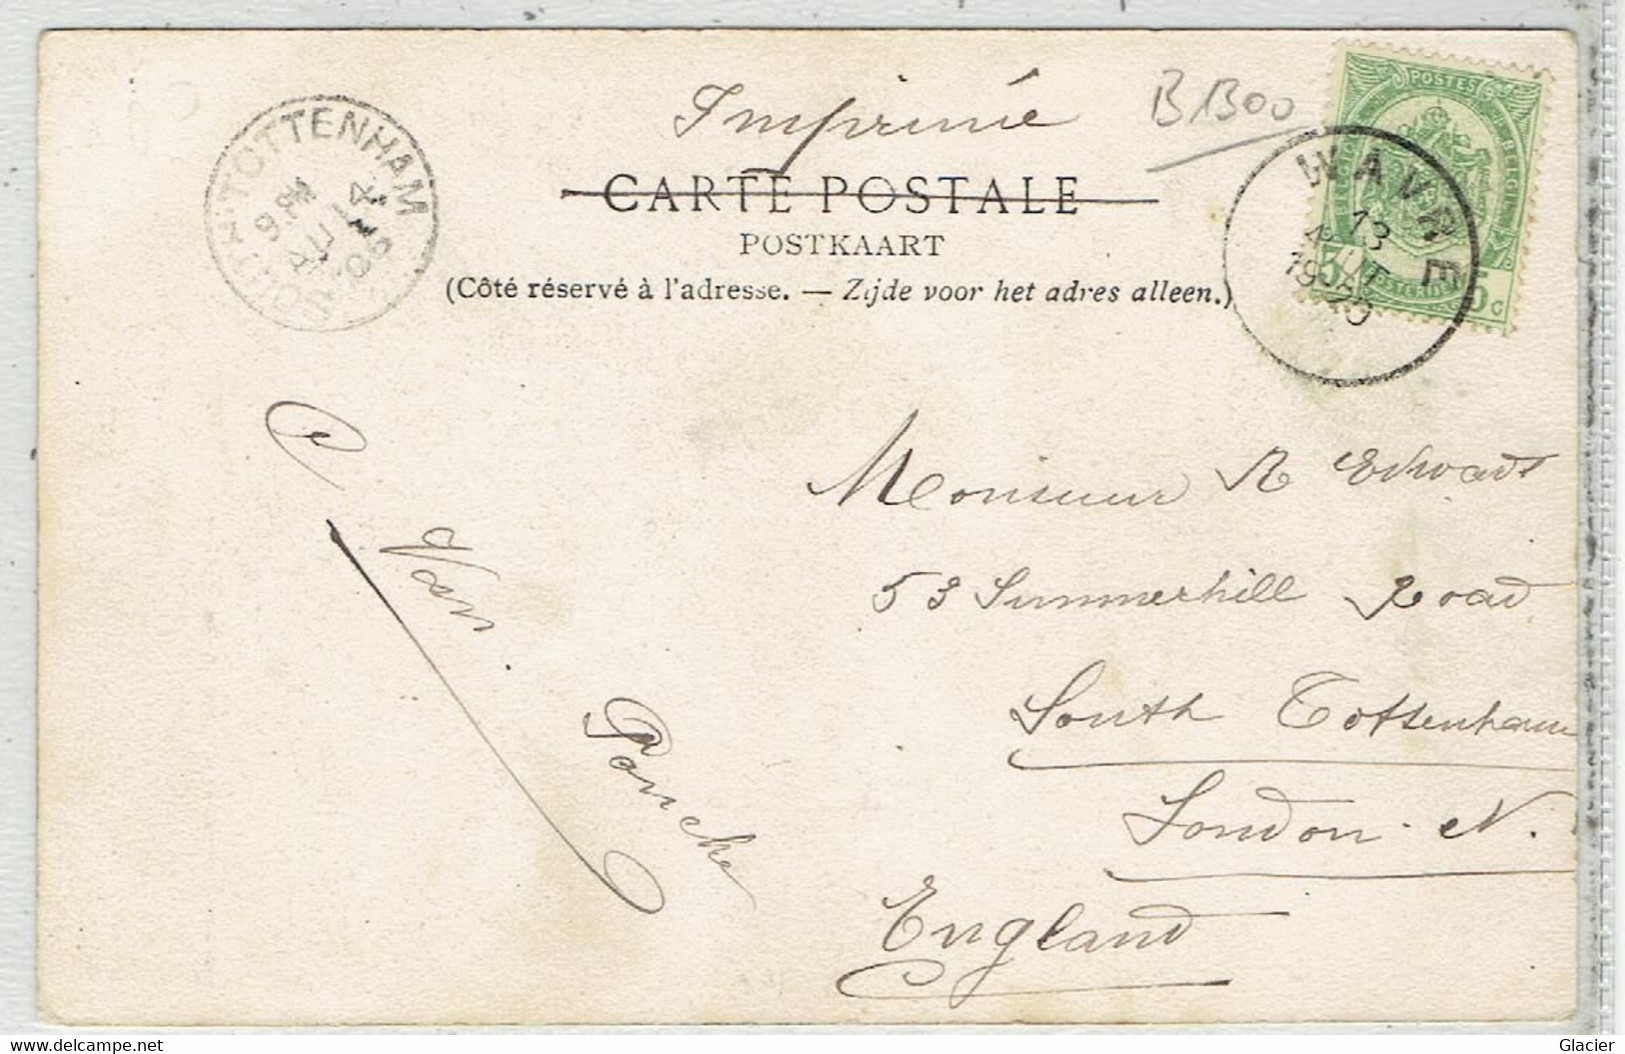 Imprimé
B1300
CARTE POSTALE
POSTKAART
(Côté réservé à l'adresse. — Zijde voor het adres alleen.)
SOUTH-TOTTENHAM
AU 14
05
POSTES
WAVRE
13
AOUT
5c
Monsieur R Edwards
53 Summerhill Road
South Tottenham
London. N.
England
Van
Delcampe.net
Glacier